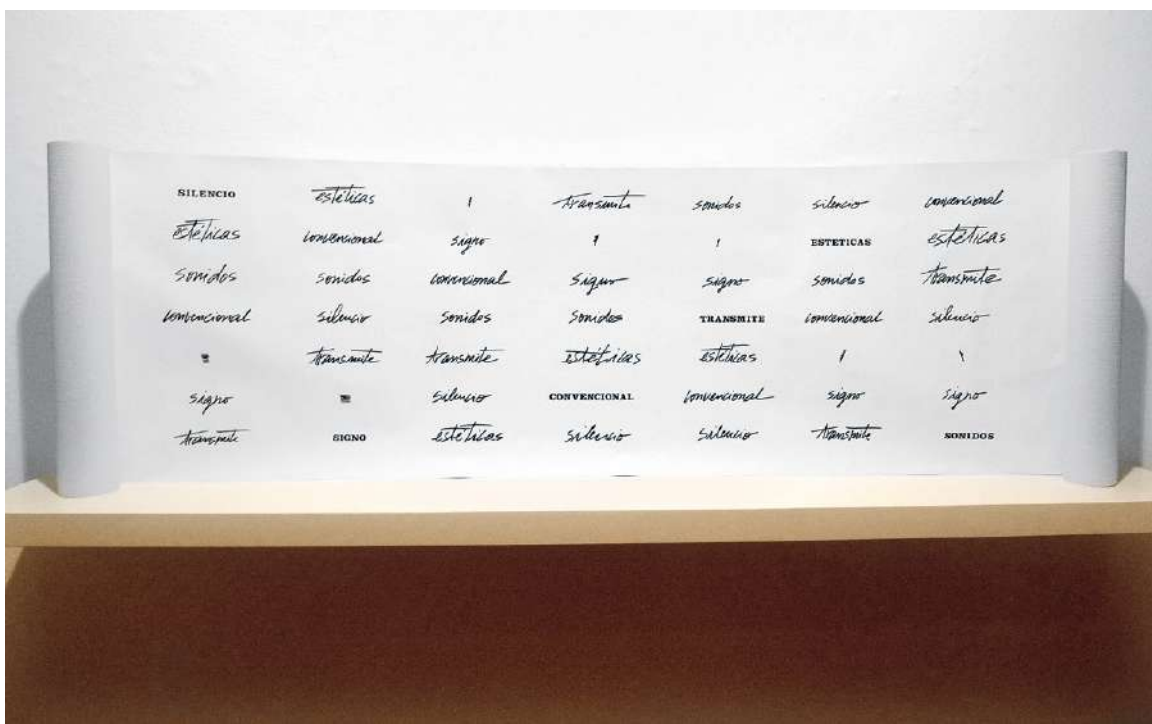 SILENCIO estéticas transmite sonidos silencio convencional
estéticas convencional signo ESTETICAS estéticas
sonidos sonidos convencional signo signo sonidos transmite
convencional silencio sonidos sonidos TRANSMITE convencional silencio
transmite transmite estéticas estéticas
signo silencio CONVENCIONAL convencional signo signo
transmite SIGNO estéticas silencio silencio transmite SONIDOS